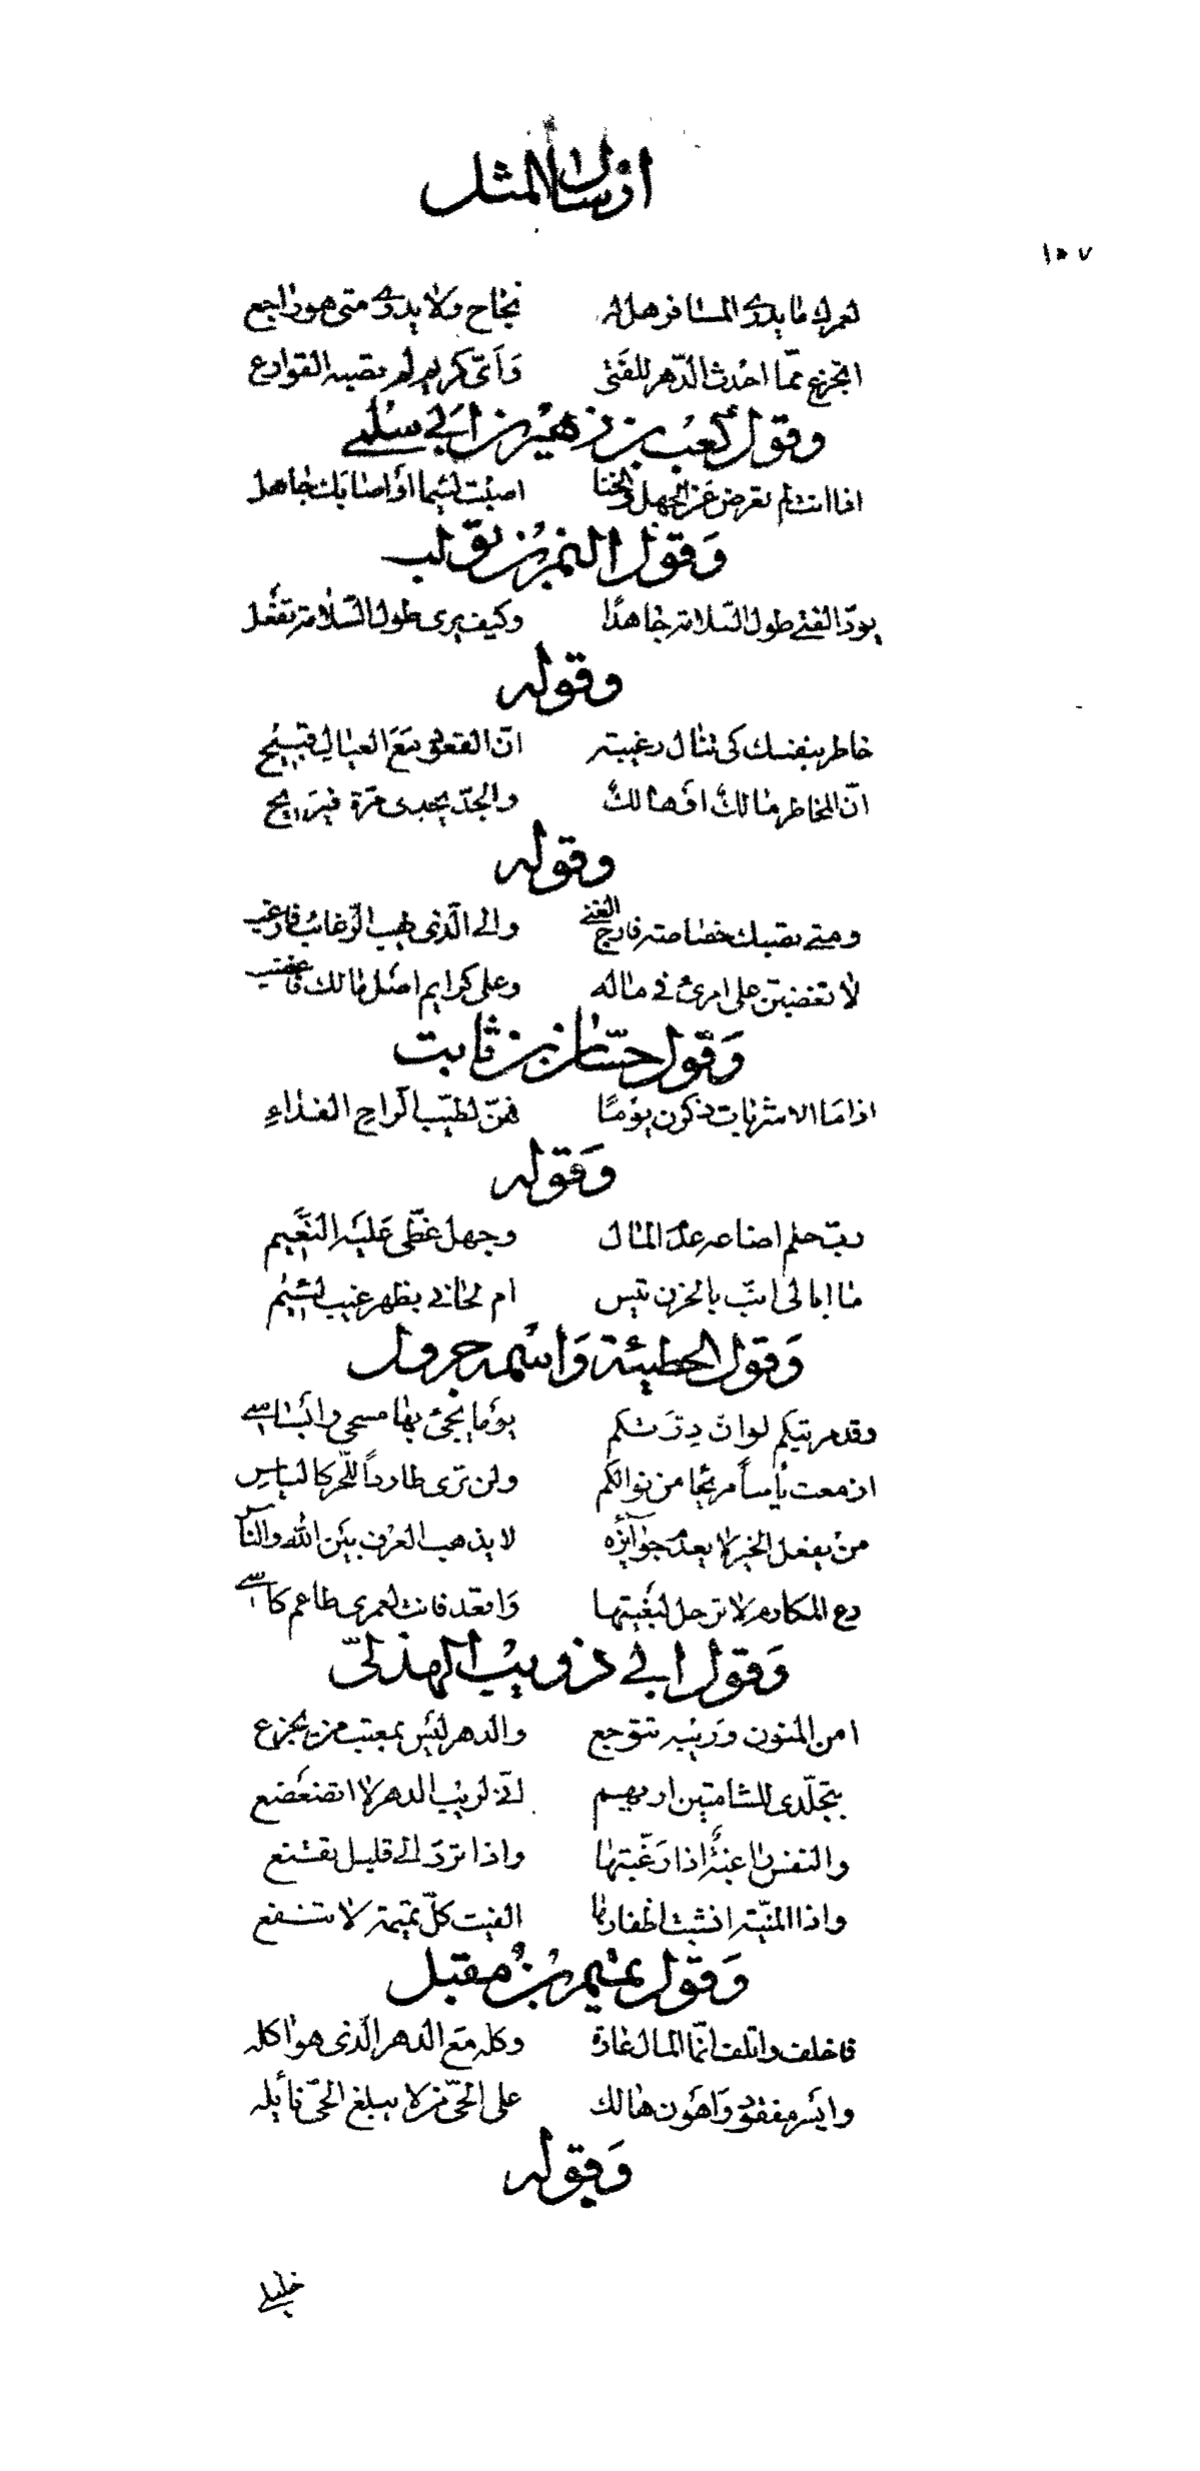 ارسال المثل
١٥٧
لعمرك ما يدرى المسافر هل له نجاح ولا يدرى متى هو راجع
اتجزع مّما احدث الدّهر للفَتى وَاَىّ كريم لم تصبه القوارع
وقول كعب بن زهير بن ابى سلمى
اذا انت لم تعرض عن الجهل والخنا اصبْت لئيما اَوْ اصابك جاهل
وَقول النمر بن تولب
يودّ الفتى طول السّلامة جاهدًا وكيف يرى طول السّلامة تفْعل
وقوله
خاطر بنفسك كى تنال رغيبة انّ القعود مَعَ العيال قبيْح
انّ المخاطر مالك اوْ هالك والجدّ يجدى مرّة فيريح
وقوله
ومتى تصبك خصاصة فارج الغنى والى الّذى يهب الرّغائب فارغب
لا تغضبنّ على امرئ فى ماله وعلى كرايم اصل مالك فاغضب
وَقول حسّان بن ثابت
اذا مَا الاشربات ذكرن يوْمًا فهنّ لطيّب الراح الفداءِ
وَقوله
ربّ حلم اضاعه عدَم المال وجهل غطّى عَليْه النّعيم
ما ابالى انبّ بالحزن تيس ام لحانى بظهر غيب لئيْم
وَقول الحطيئة وَاسْمه جرول
وقد مريتكم لو انّ درّتكم يوْما يجئ بها مسحى وابْساسى
ازمعت يأساً مريحا من نوالكم ولن ترى طارداً للحر كالياسِ
منْ يفعل الخير لا يعدَم جوآئزه لا يذهب العرْف بيْن الله والناس
دع المكارم لا ترحل لبغْيتها وَاقعد فانت لعمرى طاعم كاسى
وَقول ابى ذويب الهذلىّ
امن المنون وَريْبه تتوجع والدهر ليْس بمعتب من يجزع
بتجلّدى للشامتين اريهم انّى لريْب الدهر لا اتضعْضع
والنفس راغبةٌ اذا رَغّبتها واذا تردّ الى قليل تقنع
واذا المنيّة انشبت اظفارها الفيت كلّ تميمة لا تنفع
وَقول تميم بن مقبل
فاخلف واتلف انّما المال غارة وكله مَع الدهر الّذى هو اكله
وايْسر مفقود وَاهْون هالك على الحىّ من لا يبلغ الحىّ نائله
وَقوله